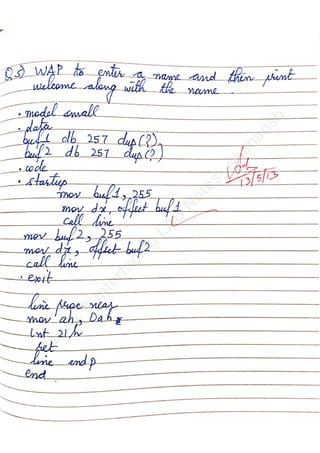 Q5) WAP to enter a name and then print
welcome along with the name.
.model small
.data
buf1 db 257 dup(?)
buf2 db 257 dup(?)
.code
.startup
mov buf1, 255
mov dx, offset buf1
call line
mov buf2, 255
mov dx, offset buf2
call line
.exit
line proc near
mov ah, 0ah
int 21h
ret
line endp
end
13/5/13